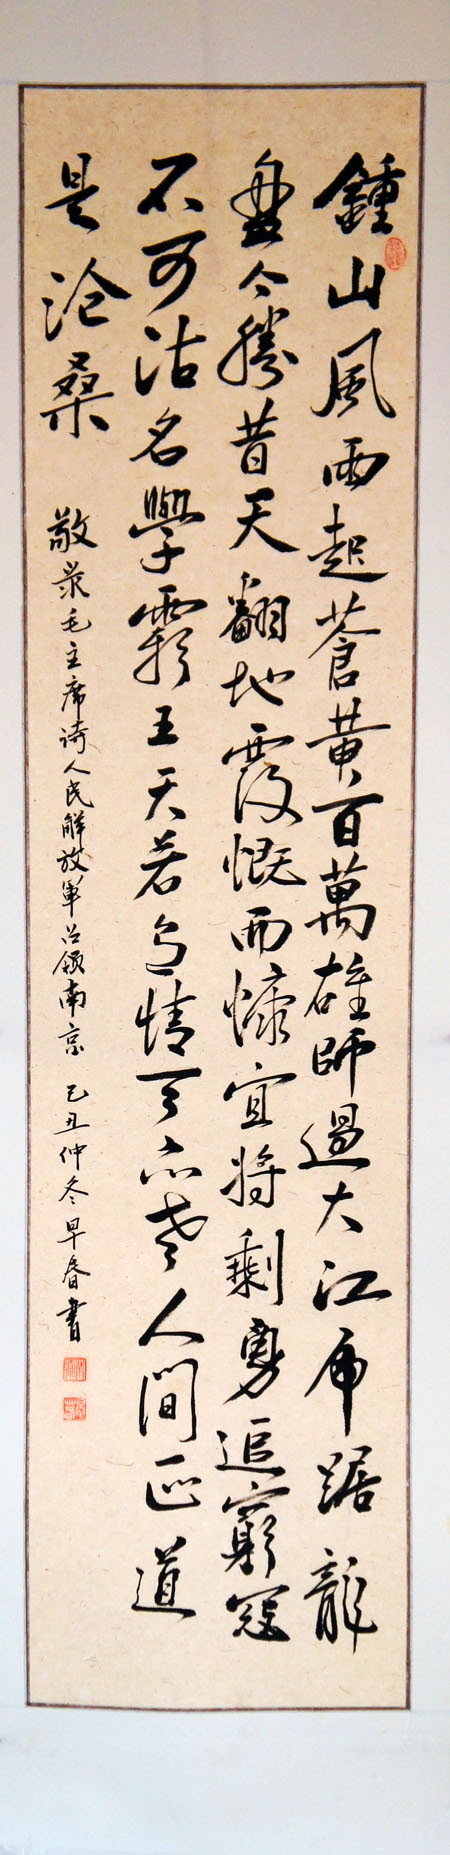 鍾山風雨起蒼黃百萬雄師過大江虎踞龍
盤今勝昔天翻地覆慨而慷宜將剩勇追窮寇
不可沽名學霸王天若有情天亦老人間正道
是滄桑
敬录毛主席诗人民解放軍占领南京 己丑仲冬早春書